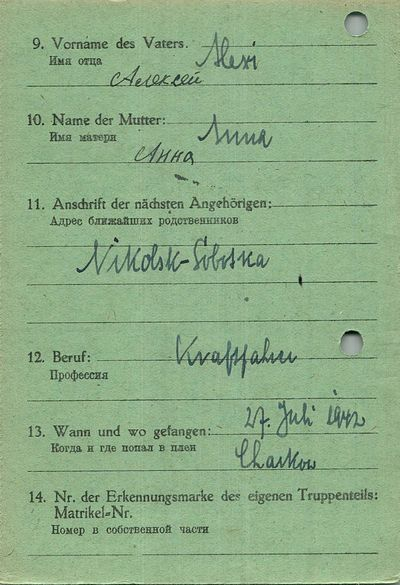 9. Vorname des Vaters. Alexi
Имя отца
Алексей
10. Name der Mutter: Anna
Имя матери
Анна
11. Anschrift der nächsten Angehörigen:
Адрес ближайших родственников
Nikolsk-Sloboska
12. Beruf: Kraftfahrer
Профессия
27. Juli 1942
13. Wann und wo gefangen:
Когда и где попал в плен
Charkow
14. Nr. der Erkennungsmarke des eigenen Truppenteils:
Matrikel-Nr.
Номер в собственной части